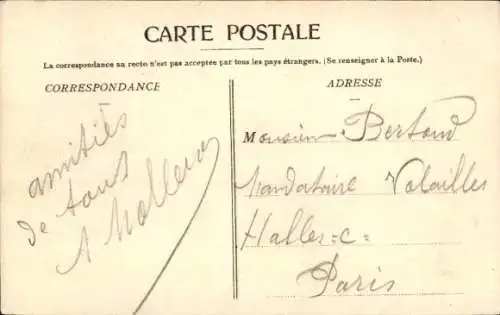 CARTE POSTALE
La correspondance au recto n'est pas acceptée par tous les pays étrangers. (Se renseigner à la Poste.)
CORRESPONDANCE
amitiés
de tous
A
ADRESSE
Monsieur Bertaud
Mandataire Volailles
Halles =c=
Paris